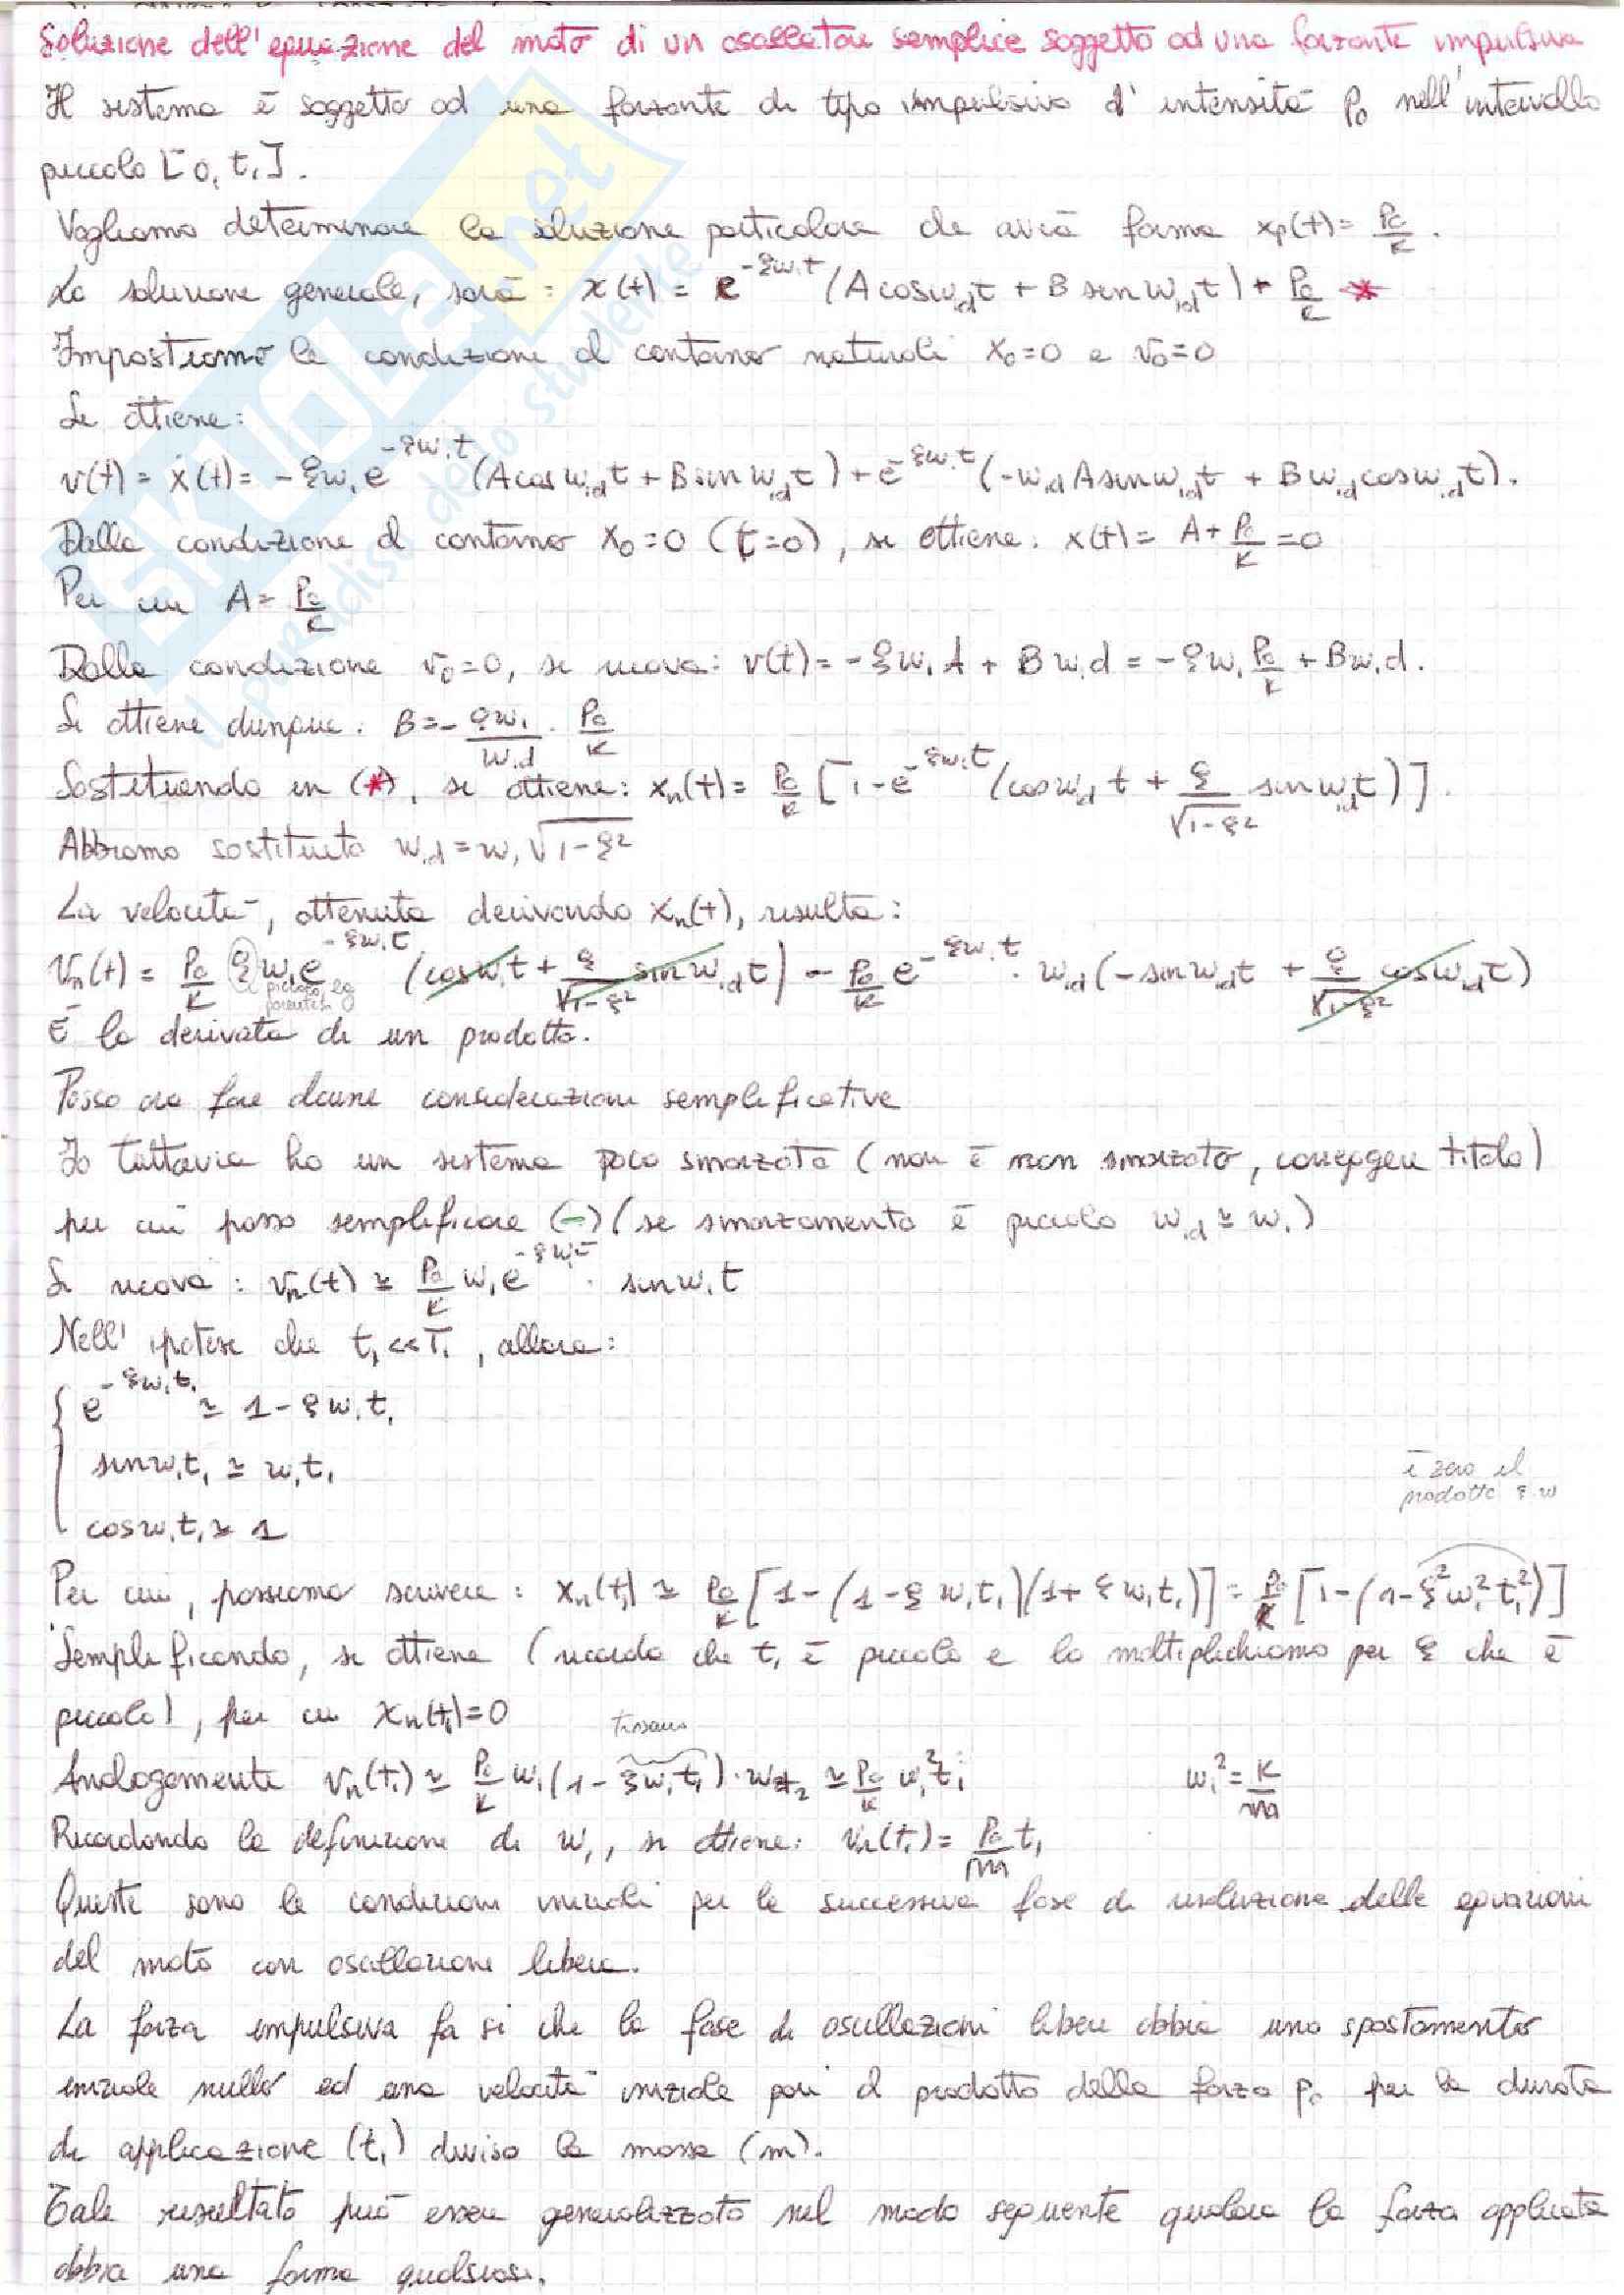 Soluzione dell'equazione del moto di un oscillatore semplice soggetto ad una forzante impulsiva
Il sistema è soggetto ad una forzante di tipo impulsivo d'intensità P₀ nell'intervallo
piccolo [0, t₁].
Vogliamo determinare la soluzione particolare che avrà forma xp(t) = P₀/K.
La soluzione generale, sarà: x(t) = e^(-ξω₁t) (A cosω₁d t + B senω₁d t) + P₀/K *
Impostiamo le condizioni al contorno naturali x₀=0 e v₀=0
Si ottiene:
v(t) = ẋ(t) = -ξω₁e^(-ξω₁t) (A cosω₁d t + B sinω₁d t) + e^(-ξω₁t) (-ω₁d A sinω₁d t + B ω₁d cosω₁d t).
Dalla condizione al contorno x₀=0 (t=0), si ottiene: x(t) = A + P₀/K = 0
Per cui A = P₀/K
Dalla condizione v₀=0, si ricava: v(t) = -ξω₁A + Bω₁d = -ξω₁ P₀/K + Bω₁d.
Si ottiene dunque: B = - ξω₁/ω₁d · P₀/K
Sostituendo in (*), si ottiene: xₙ(t) = P₀/K [1 - e^(-ξω₁t) (cosω₁d t + ξ/√(1-ξ²) sinω₁d t)].
Abbiamo sostituito ω₁d = ω₁√(1-ξ²)
La velocità, ottenuta derivando xₙ(t), risulta:
vₙ(t) = P₀/K ξω₁e^(-ξω₁t) (cosω₁t + ξ/√(1-ξ²) sinω₁d t) - P₀/K e^(-ξω₁t) · ω₁d (-sinω₁d t + ξ/√(1-ξ²) cosω₁d t)
È la derivata di un prodotto.
Posso ora fare alcune considerazioni semplificative
Io tuttavia ho un sistema poco smorzato (non è non smorzato, correggere titolo)
per cui posso semplificare (-) (se smorzamento è piccolo ω₁d ≃ ω₁)
Si ricava: vₙ(t) ≃ P₀/K ω₁e^(-ξω₁t) · sinω₁t
Nell'ipotesi che t₁ << T₁, allora:
e^(-ξω₁t₁) ≃ 1 - ξω₁t₁
sinω₁t₁ ≃ ω₁t₁
è zero il
prodotto ξ·ω
cosω₁t₁ ≃ 1
Per cui, possiamo scrivere: xₙ(t₁) ≃ P₀/K [1 - (1 - ξω₁t₁)(1 + ξω₁t₁)] = P₀/K [1 - (1 - ξ²ω₁²t₁²)]
Semplificando, si ottiene (ricorda che t₁ è piccolo e lo moltiplichiamo per ξ che è
piccolo), per cui xₙ(t₁)=0
Analogamente vₙ(t₁) ≃ P₀/K ω₁(1 - ξω₁t₁) · ω₁t₁ ≃ P₀/K ω₁²t₁ ω₁² = K/m
Ricordando la definizione di ω₁, si ottiene: vₙ(t₁) = P₀/m t₁
Queste sono le condizioni iniziali per la successiva fase di risoluzione delle equazioni
del moto con oscillazione libera.
La forza impulsiva fa si che la fase di oscillazioni libere abbia uno spostamento
iniziale nullo ed una velocità iniziale pari al prodotto della forza p₀ per la durata
di applicazione (t₁) diviso la massa (m).
Tale risultato può essere generalizzato nel modo seguente qualora la forza applicata
abbia una forma qualsiasi.
SKUOLA.net
il paradiso dello studente